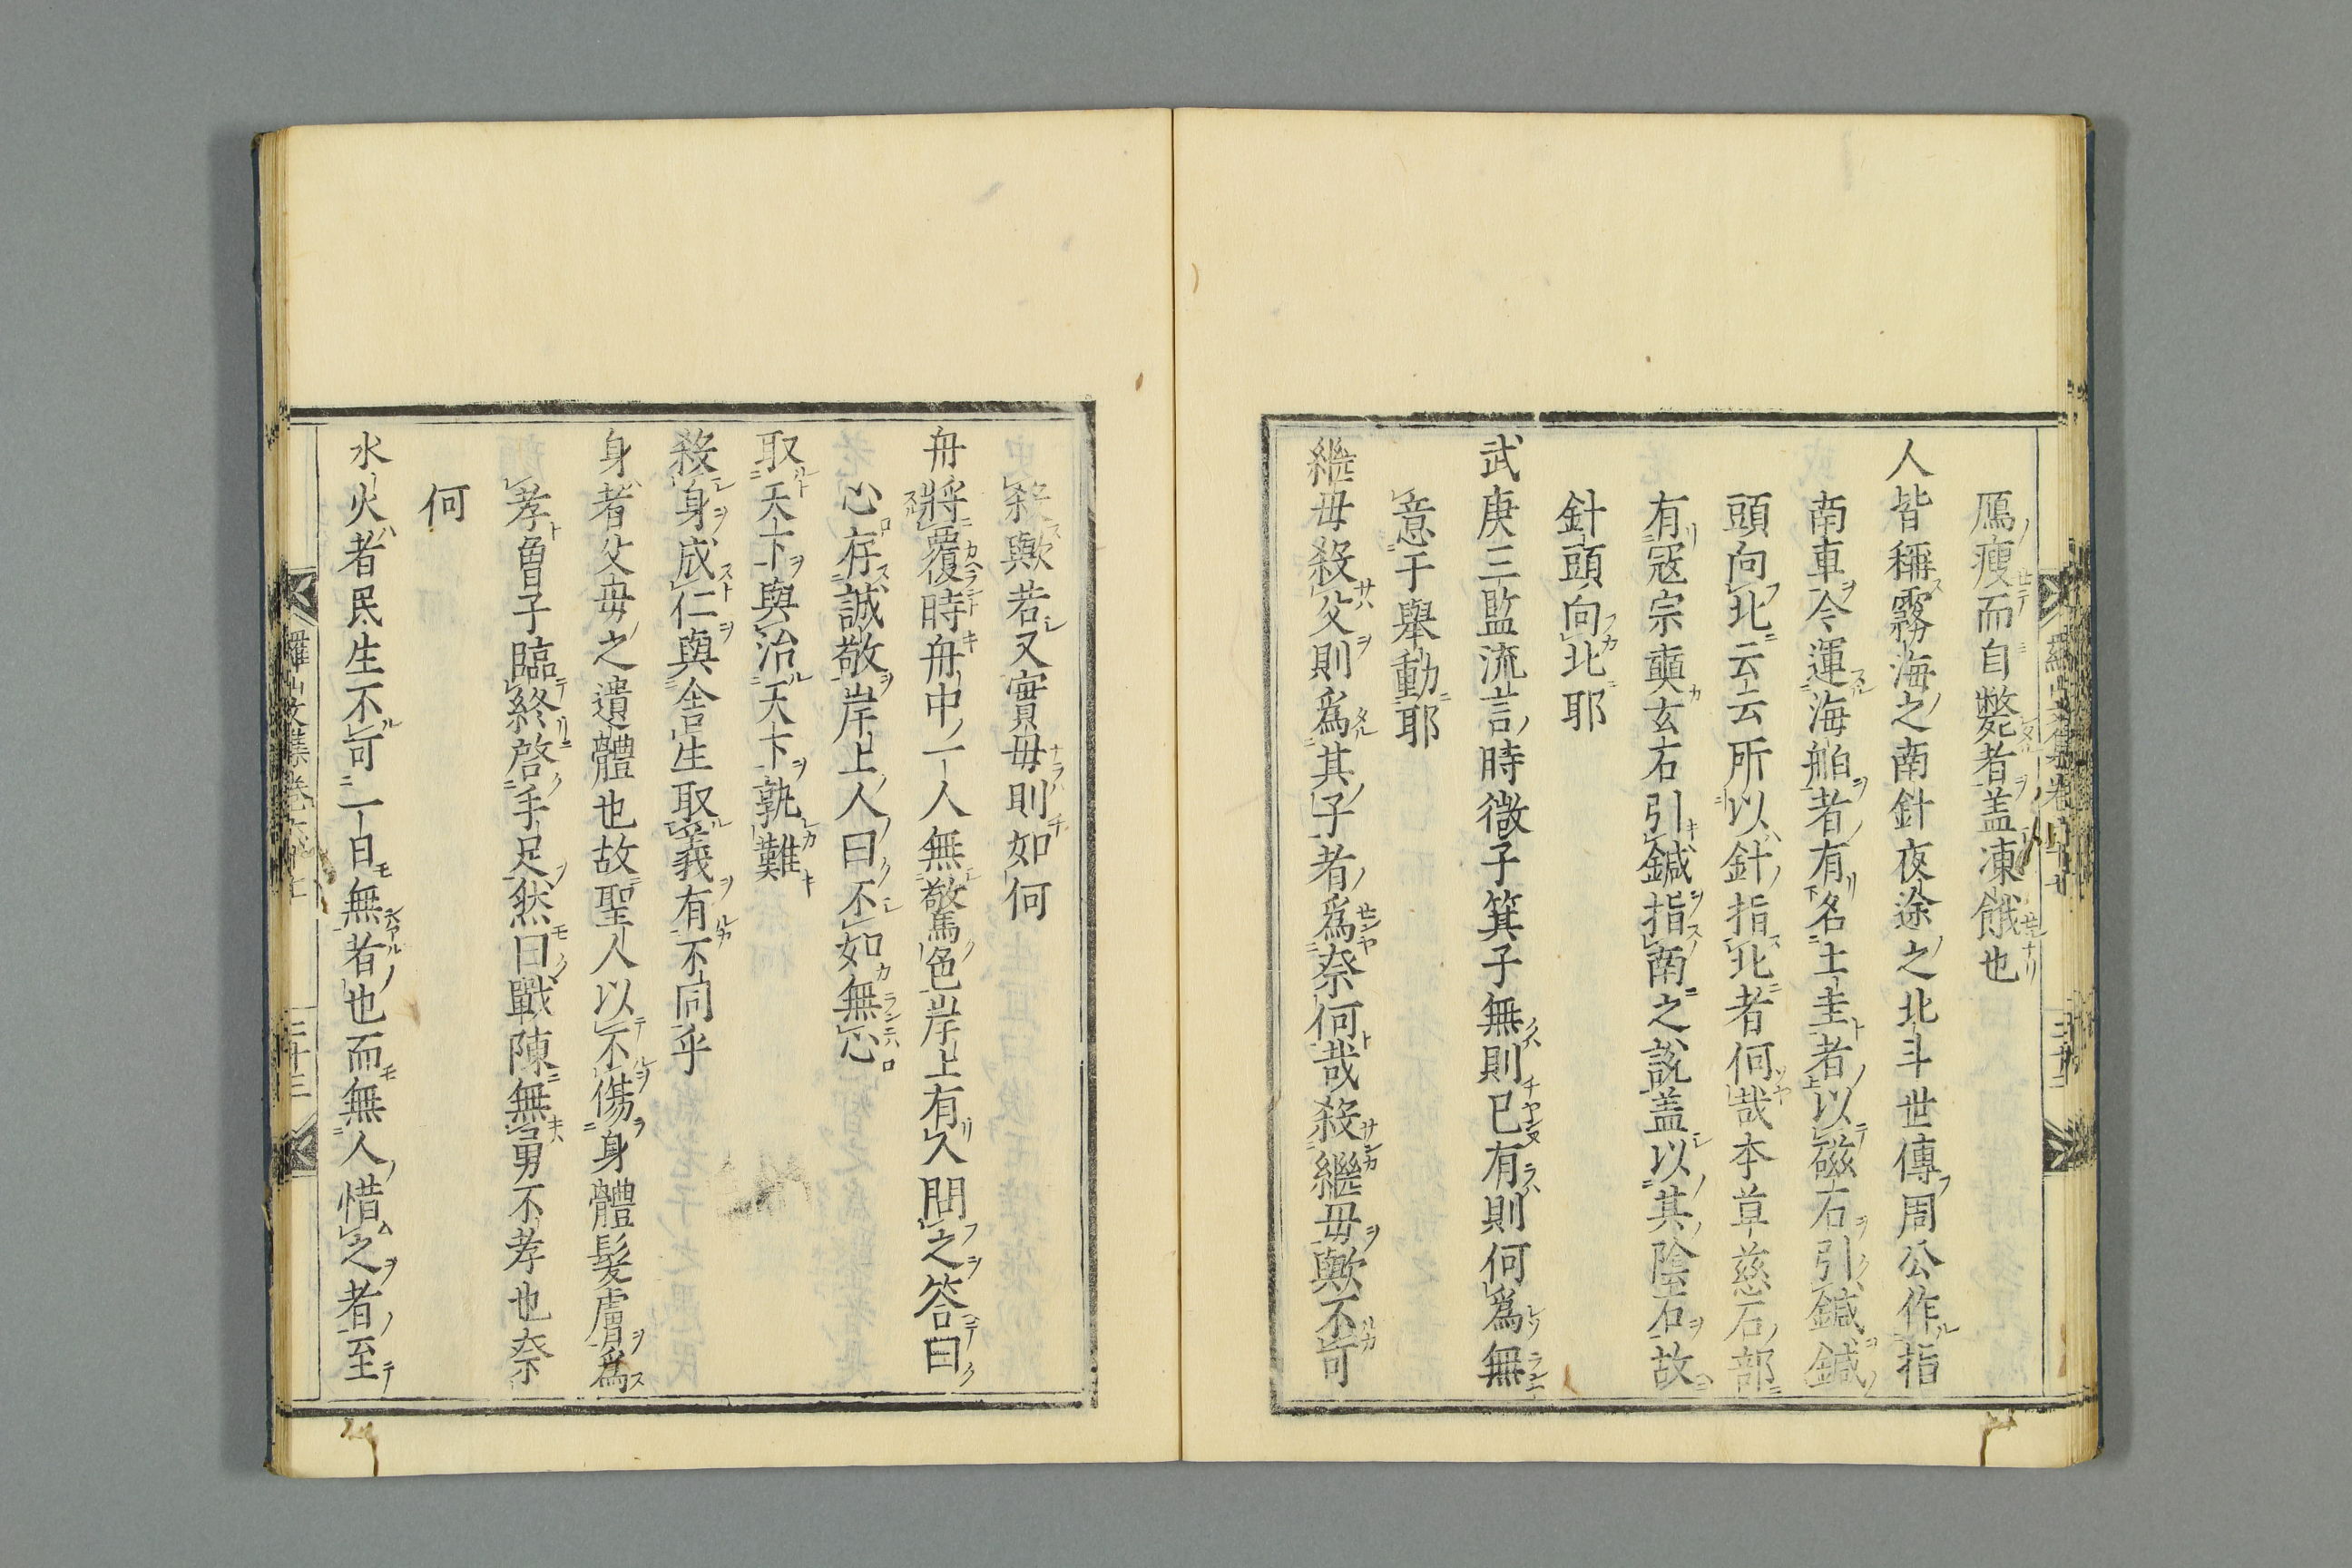 鴈瘦而自斃者盖凍餓也
人皆稱霧海之南針夜途之北斗世傳周公作指
南車今運海舶者有名土圭者以磁石引鍼鍼
頭向北云云所以針指北者何哉本草慈石部
有冦宗奭玄石引鍼指南之說盖以其陰石故
針頭向北耶
武庚三監流言時微子箕子無則已有則何爲無
意于舉動耶
繼母殺父則爲其子者爲奈何哉殺繼母歟不可
殺歟若又實母則如何
舟將覆時舟中一人無驚色岸上有人問之答曰
心存誠敬岸上人曰不如無心
取天下與治天下孰難
殺身成仁與舍生取義有不同乎
身者父母之遺體也故聖人以不傷身體髪膚爲
孝曾子臨終啓手足然曰戰陳無勇不孝也奈
何
水火者民生不可一日無者也而無人惜之者至
羅山文集卷
三十三